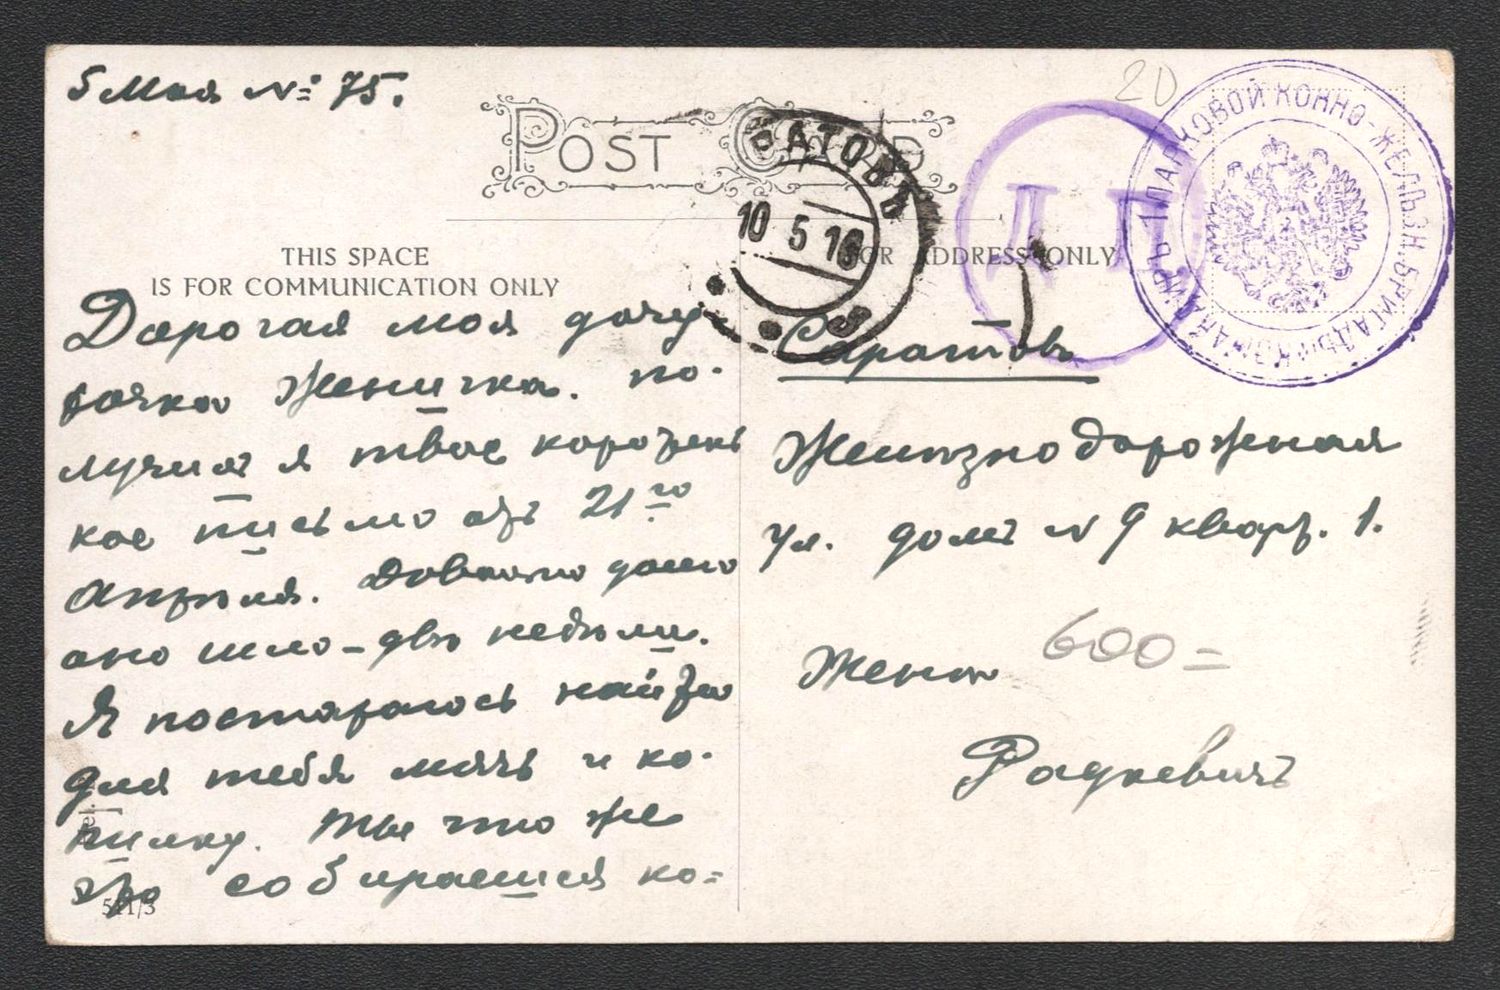 5 Мая № 75.
20
POST CARD
САРАТОВЪ
10 5 16
Д П
1 ПАРКОВОЙ КОННО-ЖЕЛѢЗН. БРИГАДЫ
THIS SPACE
IS FOR COMMUNICATION ONLY
FOR ADDRESS ONLY
Дорогая моя дочур-
Женичка. по-
лучилъ я твое коротень
кое письмо отъ 21го
Апрѣля. Довольно долго
оно шло – двѣ недѣли.
Я постараюсь найти
для тебя мячъ и ко-
пилку. Ты что же
это собираешся ко=
511/3
Саратовъ
Желѣзнодорожная
ул. домъ N 9 кварт. 1.
Женѣ
600=
Радкевичъ